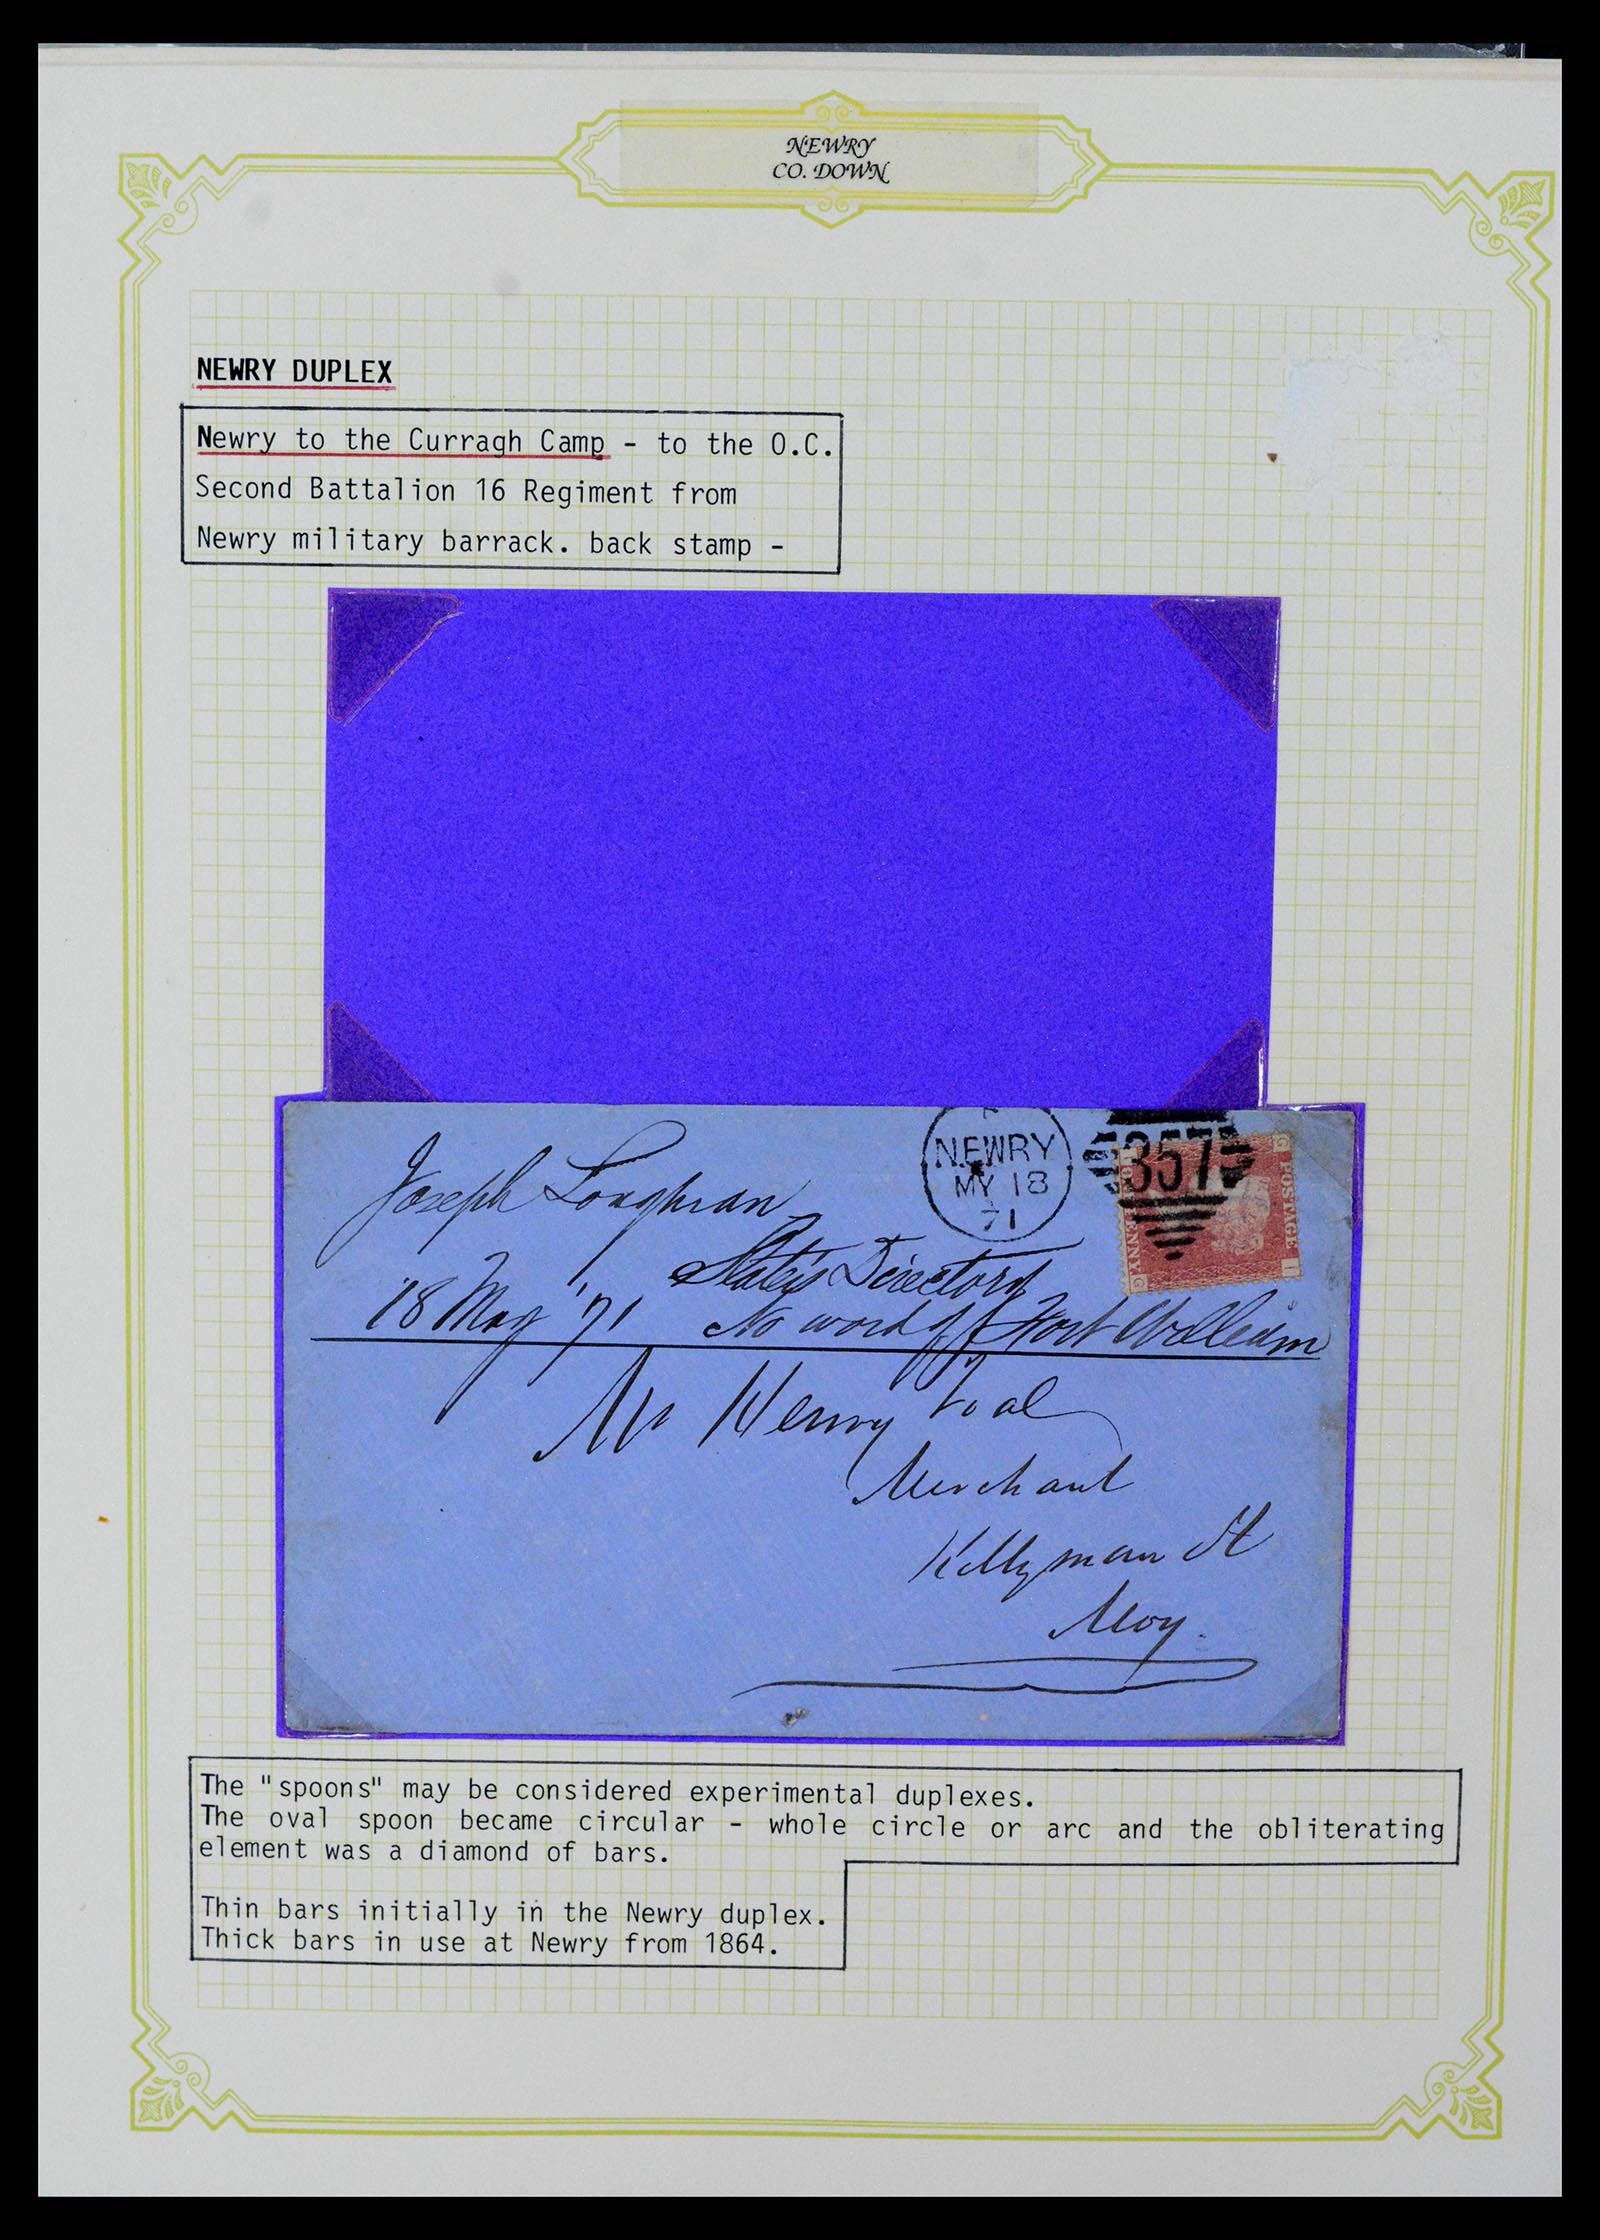 NEWRY
CO. DOWN
NEWRY DUPLEX
Newry to the Curragh Camp - to the O.C.
Second Battalion 16 Regiment from
Newry military barrack. back stamp -
NEWRY
MY 18
71
357
POSTAGE
G
I
G
Joseph Loughran
Slater's Directory
18 May '71 No word of Fort William
Mr Henry Toal
Merchant
Killyman St
Moy
The "spoons" may be considered experimental duplexes.
The oval spoon became circular - whole circle or arc and the obliterating
element was a diamond of bars.
Thin bars initially in the Newry duplex.
Thick bars in use at Newry from 1864.